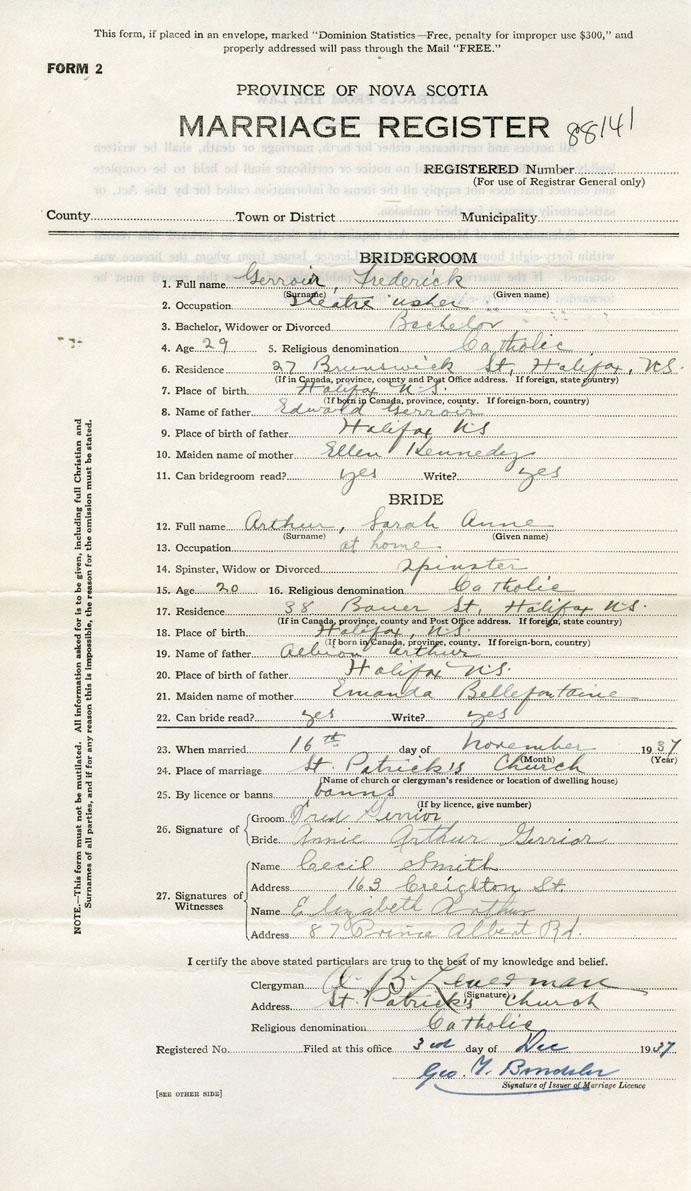 This form, if placed in an envelope, marked "Dominion Statistics—Free, penalty for improper use $300," and
properly addressed will pass through the Mail "FREE."
FORM 2
PROVINCE OF NOVA SCOTIA
MARRIAGE REGISTER 88141
REGISTERED Number
(For use of Registrar General only)
County Town or District Municipality
BRIDEGROOM
1. Full name Gerroir, Frederick
(Surname) (Given name)
2. Occupation Theatre usher
3. Bachelor, Widower or Divorced Bachelor
4. Age 29 5. Religious denomination Catholic
6. Residence 27 Brunswick St, Halifax, N.S.
(If in Canada, province, county and Post Office address. If foreign, state country)
7. Place of birth Halifax N.S.
(If born in Canada, province, county. If foreign-born, country)
8. Name of father Edward Gerroir
9. Place of birth of father Halifax NS
10. Maiden name of mother Ellen Kennedy
11. Can bridegroom read? yes Write? yes
BRIDE
12. Full name Arthur, Sarah Anne
(Surname) (Given name)
13. Occupation at home
14. Spinster, Widow or Divorced spinster
15. Age 20 16. Religious denomination Catholic
17. Residence 38 Bauer St, Halifax N.S.
(If in Canada, province, county and Post Office address. If foreign, state country)
18. Place of birth Halifax, N.S.
(If born in Canada, province, county. If foreign-born, country)
19. Name of father Albion Arthur
20. Place of birth of father Halifax N.S.
21. Maiden name of mother Emanda Bellefontaine
22. Can bride read? yes Write? yes
23. When married 16th day of November 1937
(Month) (Year)
24. Place of marriage St. Patrick's Church
(Name of church or clergyman's residence or location of dwelling house)
25. By licence or banns banns
(If by licence, give number)
26. Signature of
Groom Fred Gerrior
Bride Annie Arthur Gerrior
27. Signatures of Witnesses
Name Cecil Smith
Address 163 Creighton St.
Name Elizabeth Arthur
Address 87 Prince Albert Rd.
I certify the above stated particulars are true to the best of my knowledge and belief.
Clergyman
(Signature)
Address St. Patrick's Church
Religious denomination Catholic
Registered No. Filed at this office 3rd day of Dec 1937
Geo. T.
Signature of Issuer of Marriage Licence
[SEE OTHER SIDE]
NOTE.—This form must not be mutilated. All information asked for is to be given, including full Christian and
Surnames of all parties, and if for any reason this is impossible, the reason for the omission must be stated.